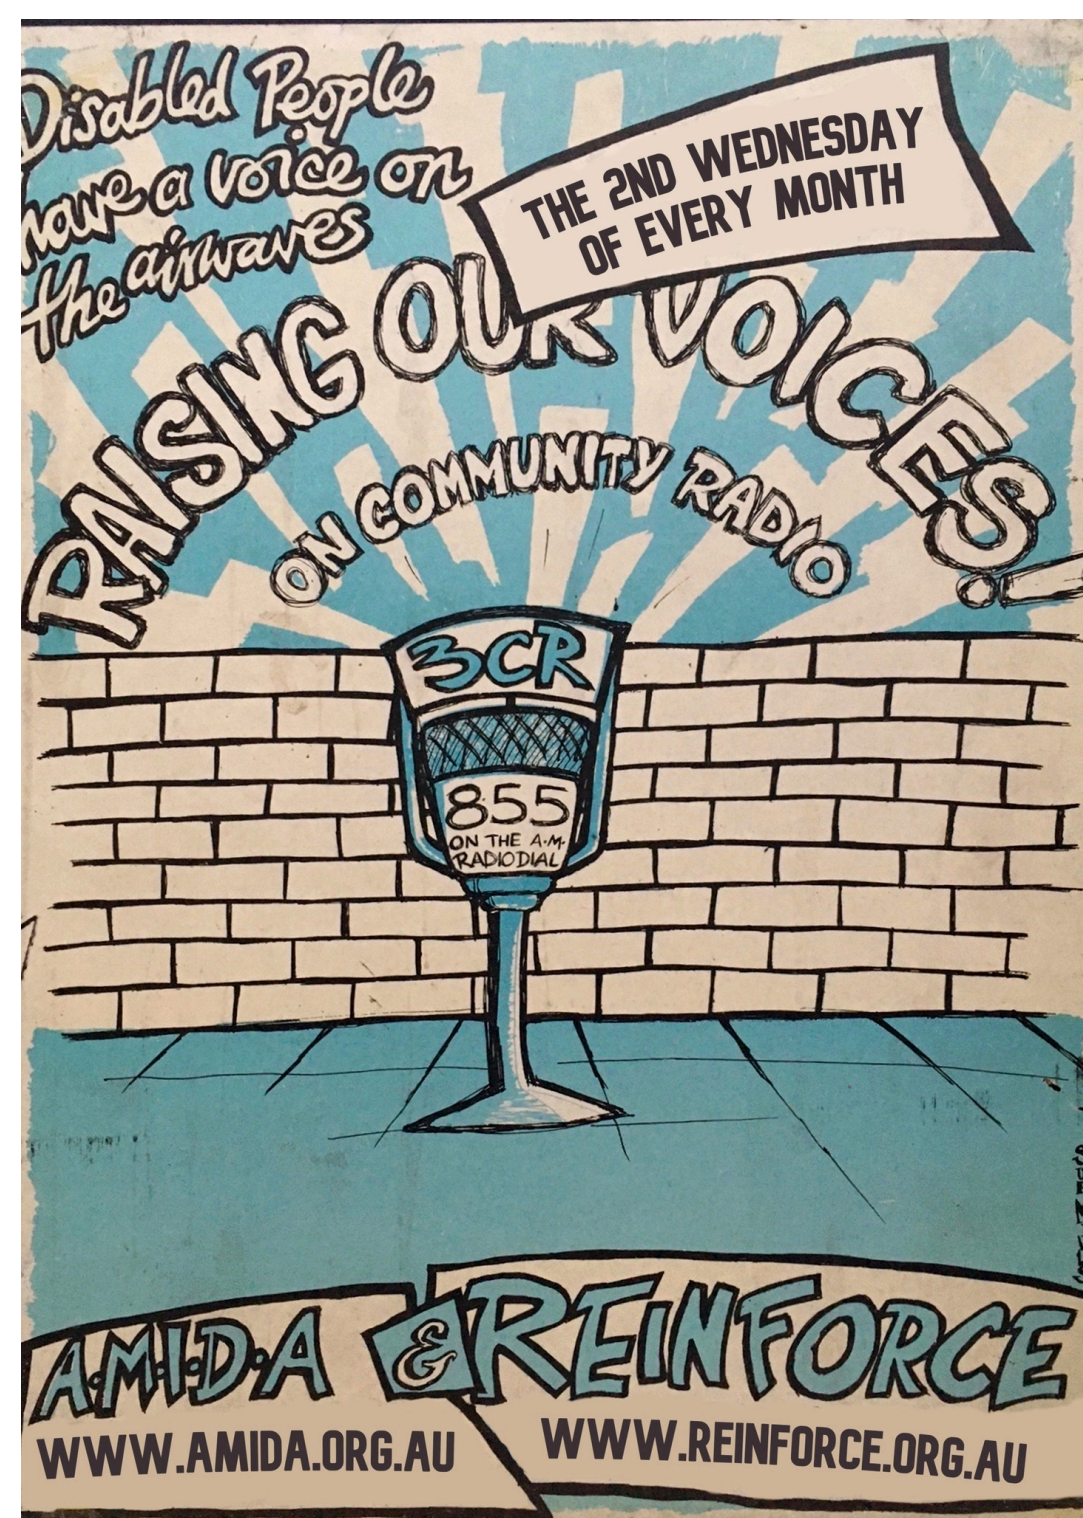 Disabled People
have a voice on
the airwaves
THE 2ND WEDNESDAY
OF EVERY MONTH
RAISING OUR VOICES!
ON COMMUNITY RADIO
3CR
855
ON THE A.M.
RADIO DIAL
A.M.I.D.A & REINFORCE
WWW.AMIDA.ORG.AU
WWW.REINFORCE.ORG.AU